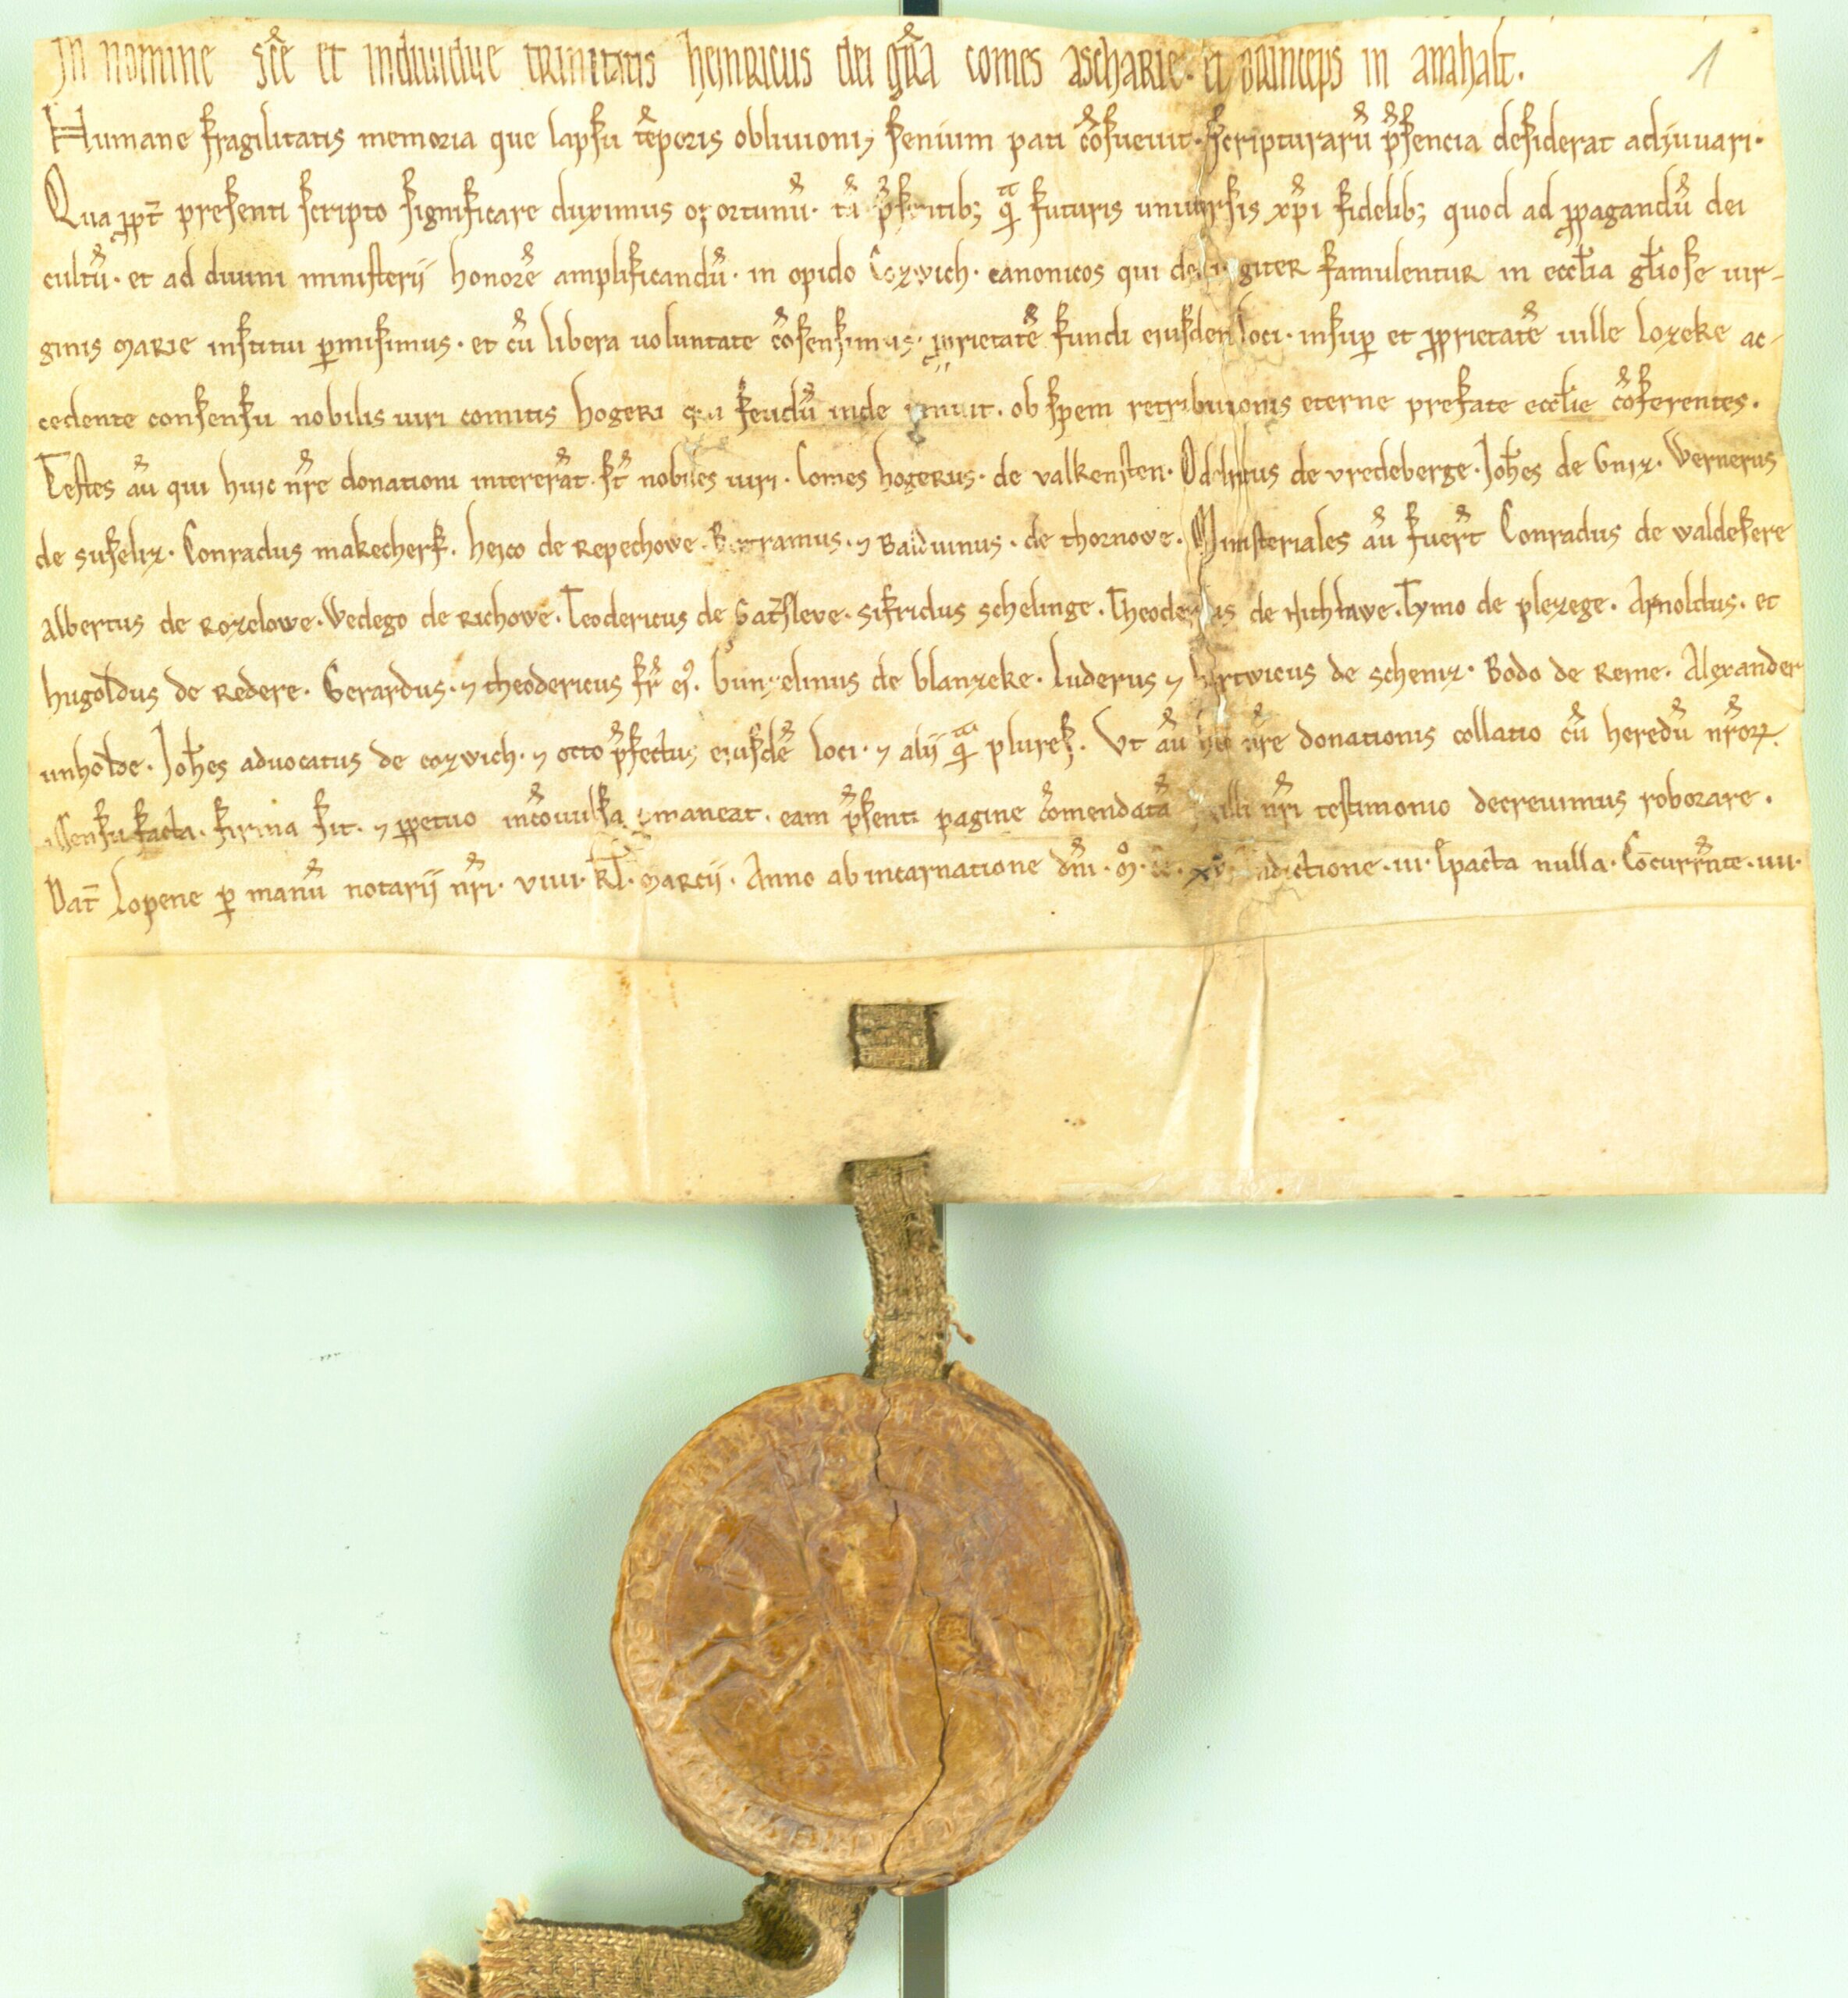 In nomine sc̄e et indiuidue trinitatis heinricus dei gr̄a comes ascharie. et princeps in anahalt. 1
Humane fragilitatis memoria que lapsu tēporis obliuionis senium pati cōsueuit. scripturarū p̄sencia desiderat adiuuari.
Qua ꝓpt̄ presenti scripto significare duximus oportunū. tā p̄sentib; q̄ᵃ futuris uniuersis xp̄i fidelib; quod ad ꝓpagandū dei
cultū. et ad diuini ministerij honorē amplificandū. in opido Cozwich. canonicos qui famulentur in eccl̄ia gl̄iose uir-
ginis marie institui ꝑmisimus. et cū libera uoluntate cōsensimus. ꝓprietatē fundi eiusdem loci. insuꝑ et ꝓprietatē uille Lozeke ac-
cedente consensu nobilis uiri comitis hogeri qui feudū inde tenuit. ob spem retributionis eterne prefate eccl̄ie cōferentes.
Testes aū qui huic nr̄e donationi intererāt. st̄ nobiles uiri. Comes hogerus. de valkensten. Odelricus de vredeberge. Joh̄es de Gniz. Wernerus
de suseliz. Conradus makecherf. heico de Repechowe. Bertramus. ⁊ Balduinus. de thornowe. Ministeriales aū fuer̄t Conradus de waldesere
Albertus de Rozelowe. Wedego de Richowe. Teodericus de Gat̄sleve. Sifridus schelinge. Theodericus de Tymo de plezege. Arnoldus. et
hugoldus de Redere. Gerardus. ⁊ theodericus fr̄ ei9. Gunzelinus de blanzeke. Luderus ⁊ hartwicus de scheniz. Bodo de Reine. Alexander
unholde. Joh̄es aduocatus de cozwich. ⁊ otto p̄fectus eiusdē loci. ⁊ alij q̄ᵃ plures. Ut aū hec nr̄e donationis collatio cū heredū nr̄oꝝ.
assensu facta. firma sit. ⁊ ꝑpetuo incōuulsa ꝑmaneat. eam p̄senti pagine cōmendatā sigilli nr̄i testimonio decreuimus roborare.
Dat̄ Lopene ꝑ manū notarij nr̄i. viiii. kl̄. marcij. Anno ab incarnatione dn̄i. m̊. cc̊. xv̊. indictione. iii. Epacta nulla. Cōcurrēnte. iii.